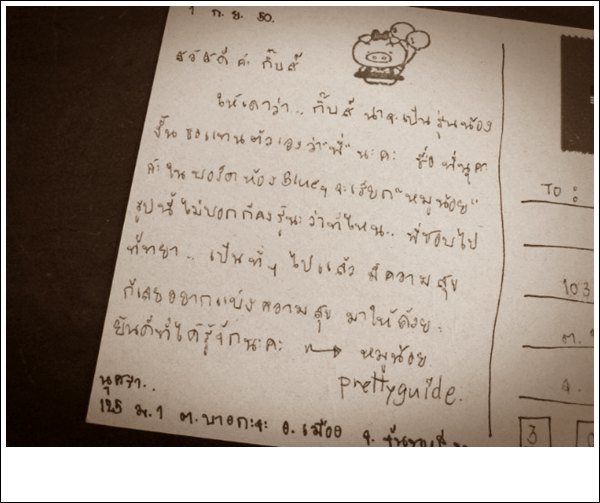 1 ก.ย. 50.
สวัสดี ค่ะ กิ๊บส์
ให้เดาว่า.. กิ๊บส์ น่าจะเป็นรุ่นน้อง
งั้น ขอแทนตัวเองว่า "พี่" นะคะ ชื่อ พี่นุ
ค่ะ ในบอร์ดห้อง Blue ๆ จะเรียก "หมูน้อย"
รูปนี้ ไม่บอกก็คงรู้นะว่าที่ไหน.. พี่ชอบไป
พัทยา.. เป็นที่ๆ ไปแล้ว มีความสุข
ก็เลยอยากแบ่งความสุข มาให้ด้วย.
ยินดีที่ได้รู้จักนะคะ → หมูน้อย
prettyguide.
125 ม.1 ต.บางกะจะ อ.เมือง จ.จันทบุรี
TO :
103
ต.
อ.
3